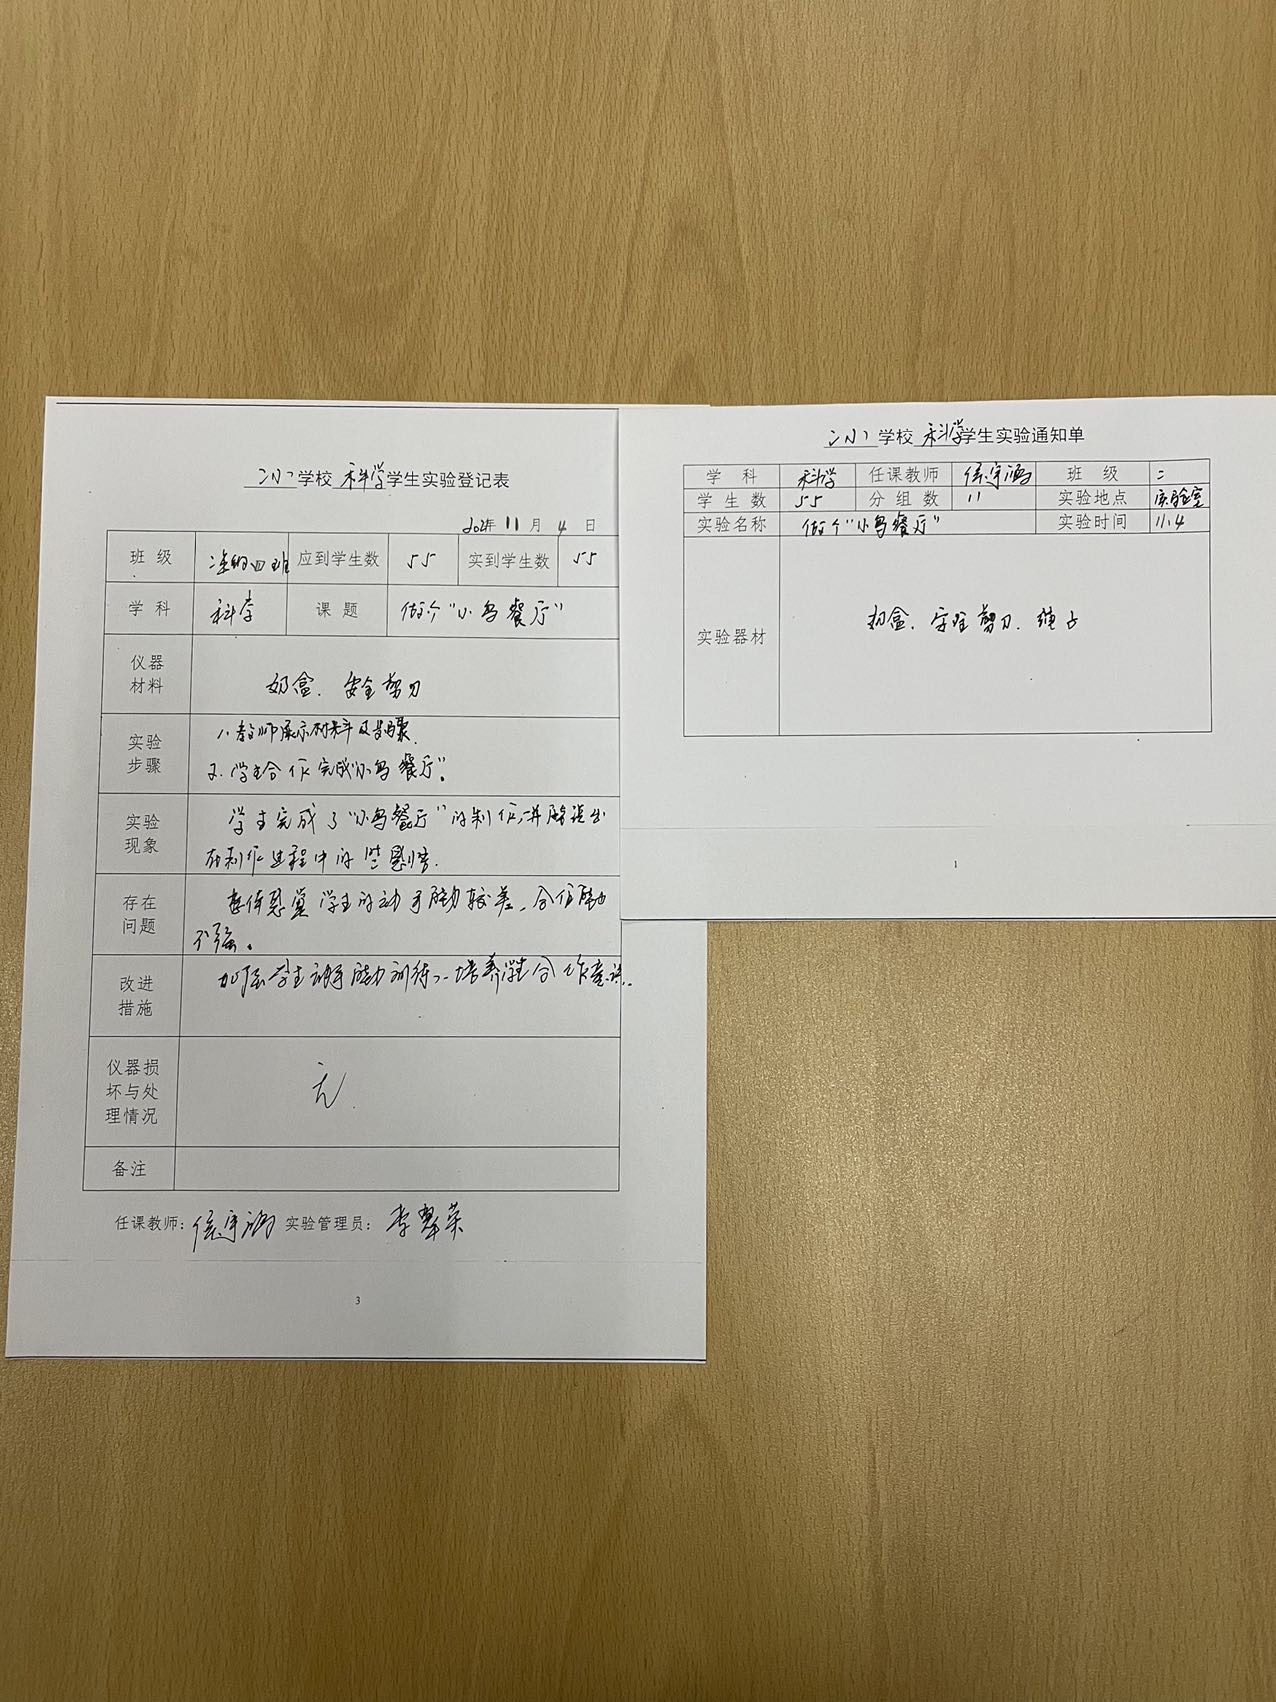 二小学校 科学学生实验登记表
11月4日
班级 二年级四班 应到学生数 55 实到学生数 55
学科 科学 课题 做个“小鸟餐厅”
仪器材料 奶盒、安全剪刀
实验步骤 1、教师展示材料及步骤.
2、学生合作完成“小鸟餐厅”。
实验现象 学生完成了“小鸟餐厅”的制作,并能说出
在制作过程中的
存在问题 学生的动手能力较差、合作能力
不强。
改进措施 加强学生动手能力训练、培养学生合作意识.
仪器损坏与处理情况 无
备注
任课教师: 实验管理员: 李翠荣
3
二小学校 科学学生实验通知单
学科 科学 任课教师 班级 二
学生数 55 分组数 11 实验地点 实验室
实验名称 做个“小鸟餐厅” 实验时间 11.4
实验器材 奶盒、安全剪刀、绳子
1